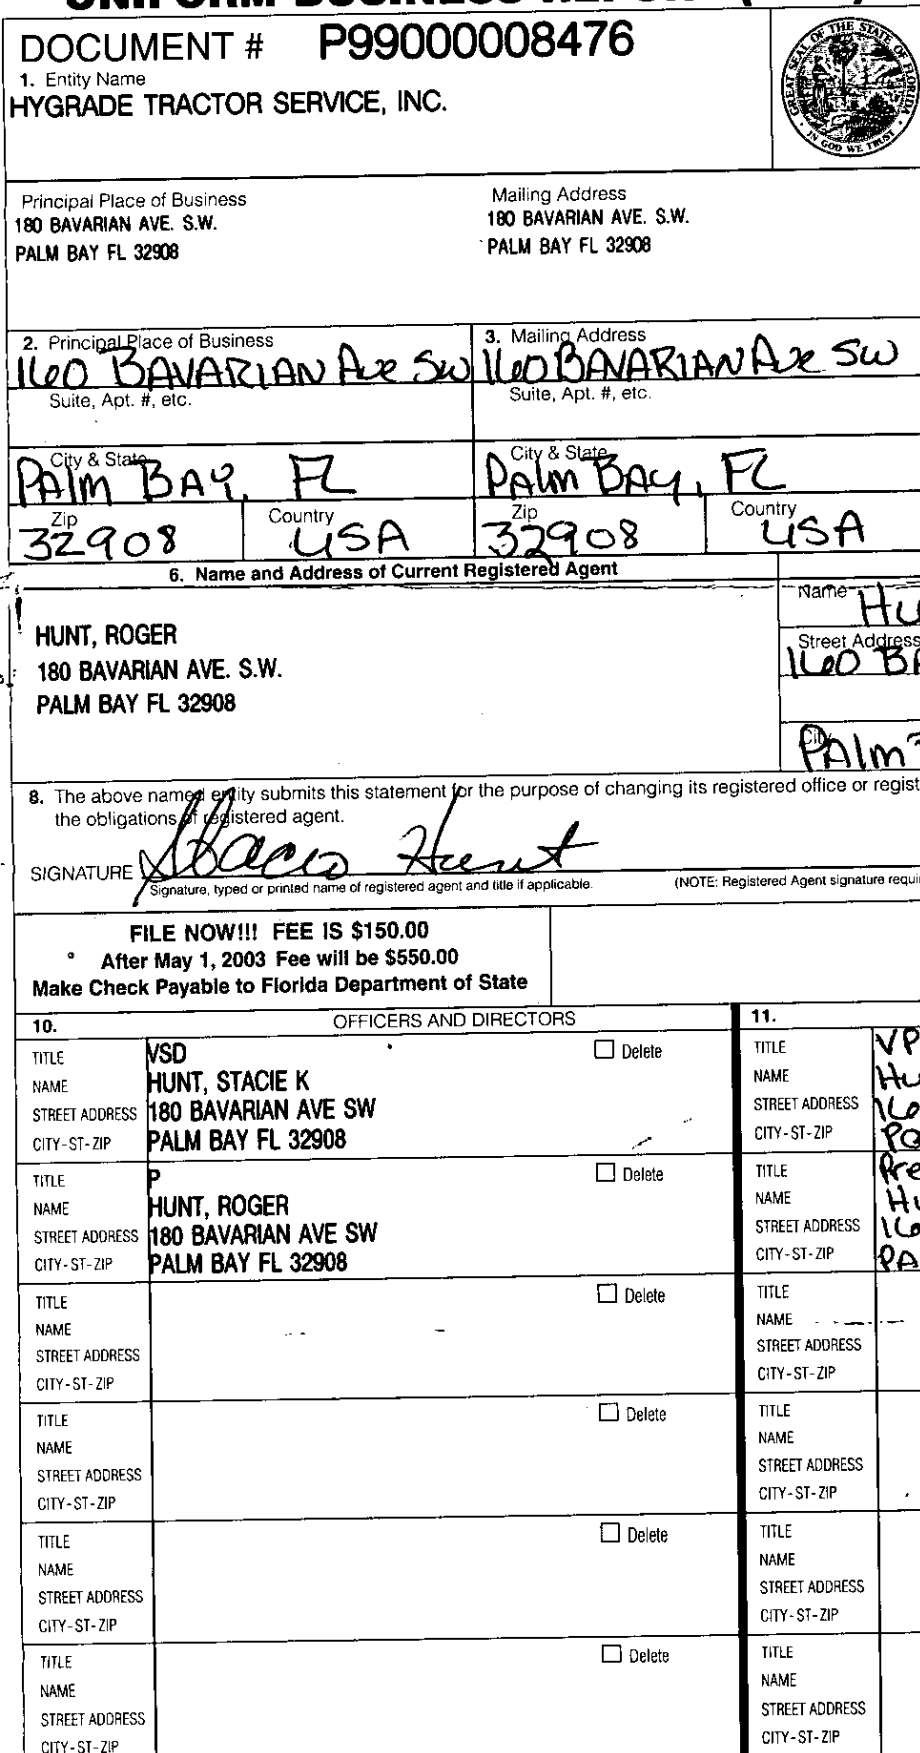 DOCUMENT # P99000008476
1. Entity Name
HYGRADE TRACTOR SERVICE, INC.
GREAT SEAL OF THE STATE OF FLORIDA
IN GOD WE TRUST
Principal Place of Business
180 BAVARIAN AVE. S.W.
PALM BAY FL 32908
Mailing Address
180 BAVARIAN AVE. S.W.
PALM BAY FL 32908
2. Principal Place of Business
160 BAVARIAN Ave SW
Suite, Apt. #, etc.
City & State
PAlm BAY, FL
Zip
32908
Country
USA
3. Mailing Address
160 BAVARIAN Ave SW
Suite, Apt. #, etc.
City & State
PAlm BAy, FL
Zip
32908
Country
USA
6. Name and Address of Current Registered Agent
HUNT, ROGER
180 BAVARIAN AVE. S.W.
PALM BAY FL 32908
Name
Hu
Street Address
160 BA
City
PAlm
8. The above named entity submits this statement for the purpose of changing its registered office or regist
the obligations of registered agent.
SIGNATURE Stacie Hunt
Signature, typed or printed name of registered agent and title if applicable.
(NOTE: Registered Agent signature requi
FILE NOW!!! FEE IS $150.00
After May 1, 2003 Fee will be $550.00
Make Check Payable to Florida Department of State
10. OFFICERS AND DIRECTORS
TITLE VSD Delete
NAME HUNT, STACIE K
STREET ADDRESS 180 BAVARIAN AVE SW
CITY-ST-ZIP PALM BAY FL 32908
TITLE P Delete
NAME HUNT, ROGER
STREET ADDRESS 180 BAVARIAN AVE SW
CITY-ST-ZIP PALM BAY FL 32908
TITLE Delete
NAME
STREET ADDRESS
CITY-ST-ZIP
TITLE Delete
NAME
STREET ADDRESS
CITY-ST-ZIP
TITLE Delete
NAME
STREET ADDRESS
CITY-ST-ZIP
TITLE Delete
NAME
STREET ADDRESS
CITY-ST-ZIP
11.
TITLE VP
NAME Hu
STREET ADDRESS 16
CITY-ST-ZIP Pa
TITLE Pre
NAME Hu
STREET ADDRESS 16
CITY-ST-ZIP PA
TITLE
NAME
STREET ADDRESS
CITY-ST-ZIP
TITLE
NAME
STREET ADDRESS
CITY-ST-ZIP
TITLE
NAME
STREET ADDRESS
CITY-ST-ZIP
TITLE
NAME
STREET ADDRESS
CITY-ST-ZIP